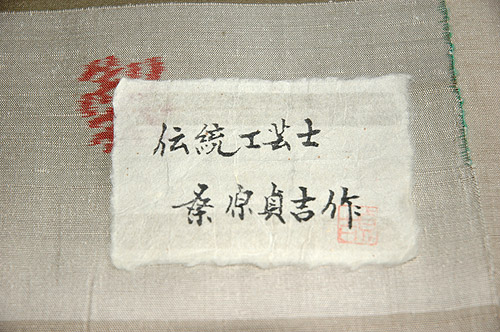 伝統工芸士
桑原貞吉作